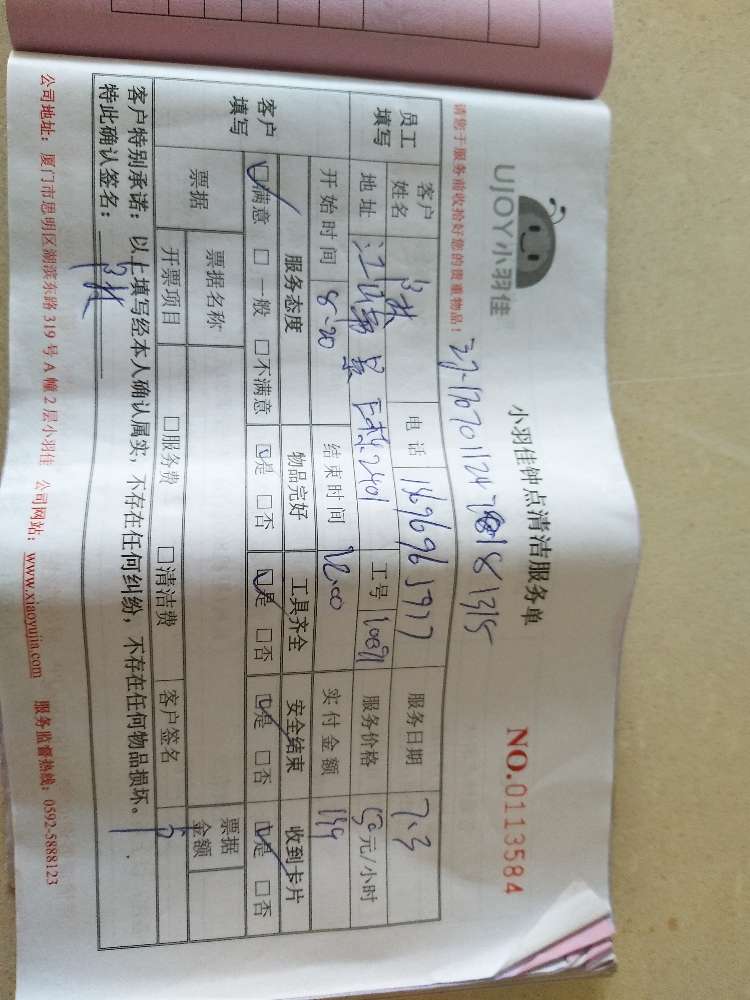 UJOY小羽佳
小羽佳钟点清洁服务单
NO.0113584
请您于服务前收拾好您的贵重物品!
员工填写 客户姓名 电话 服务日期 7.3
地址 2401 工号 服务价格 50元/小时
开始时间 8-20 结束时间 12:00 实付金额 199
客户填写 服务态度 物品完好 工具齐全 安全结束 收到卡片
☑满意 □一般 □不满意 ☑是 □否 ☑是 □否 ☑是 □否 ☑是 □否
票据 票据名称 票据金额
开票项目 □服务费 □清洁费 客户签名
客户特别承诺:以上填写经本人确认属实,不存在任何纠纷,不存在任何物品损坏。
特此确认签名:
公司地址:厦门市思明区湖滨东路319号A幢2层小羽佳 公司网站:www.xiaoyujia.com 服务监督热线:0592-5888123